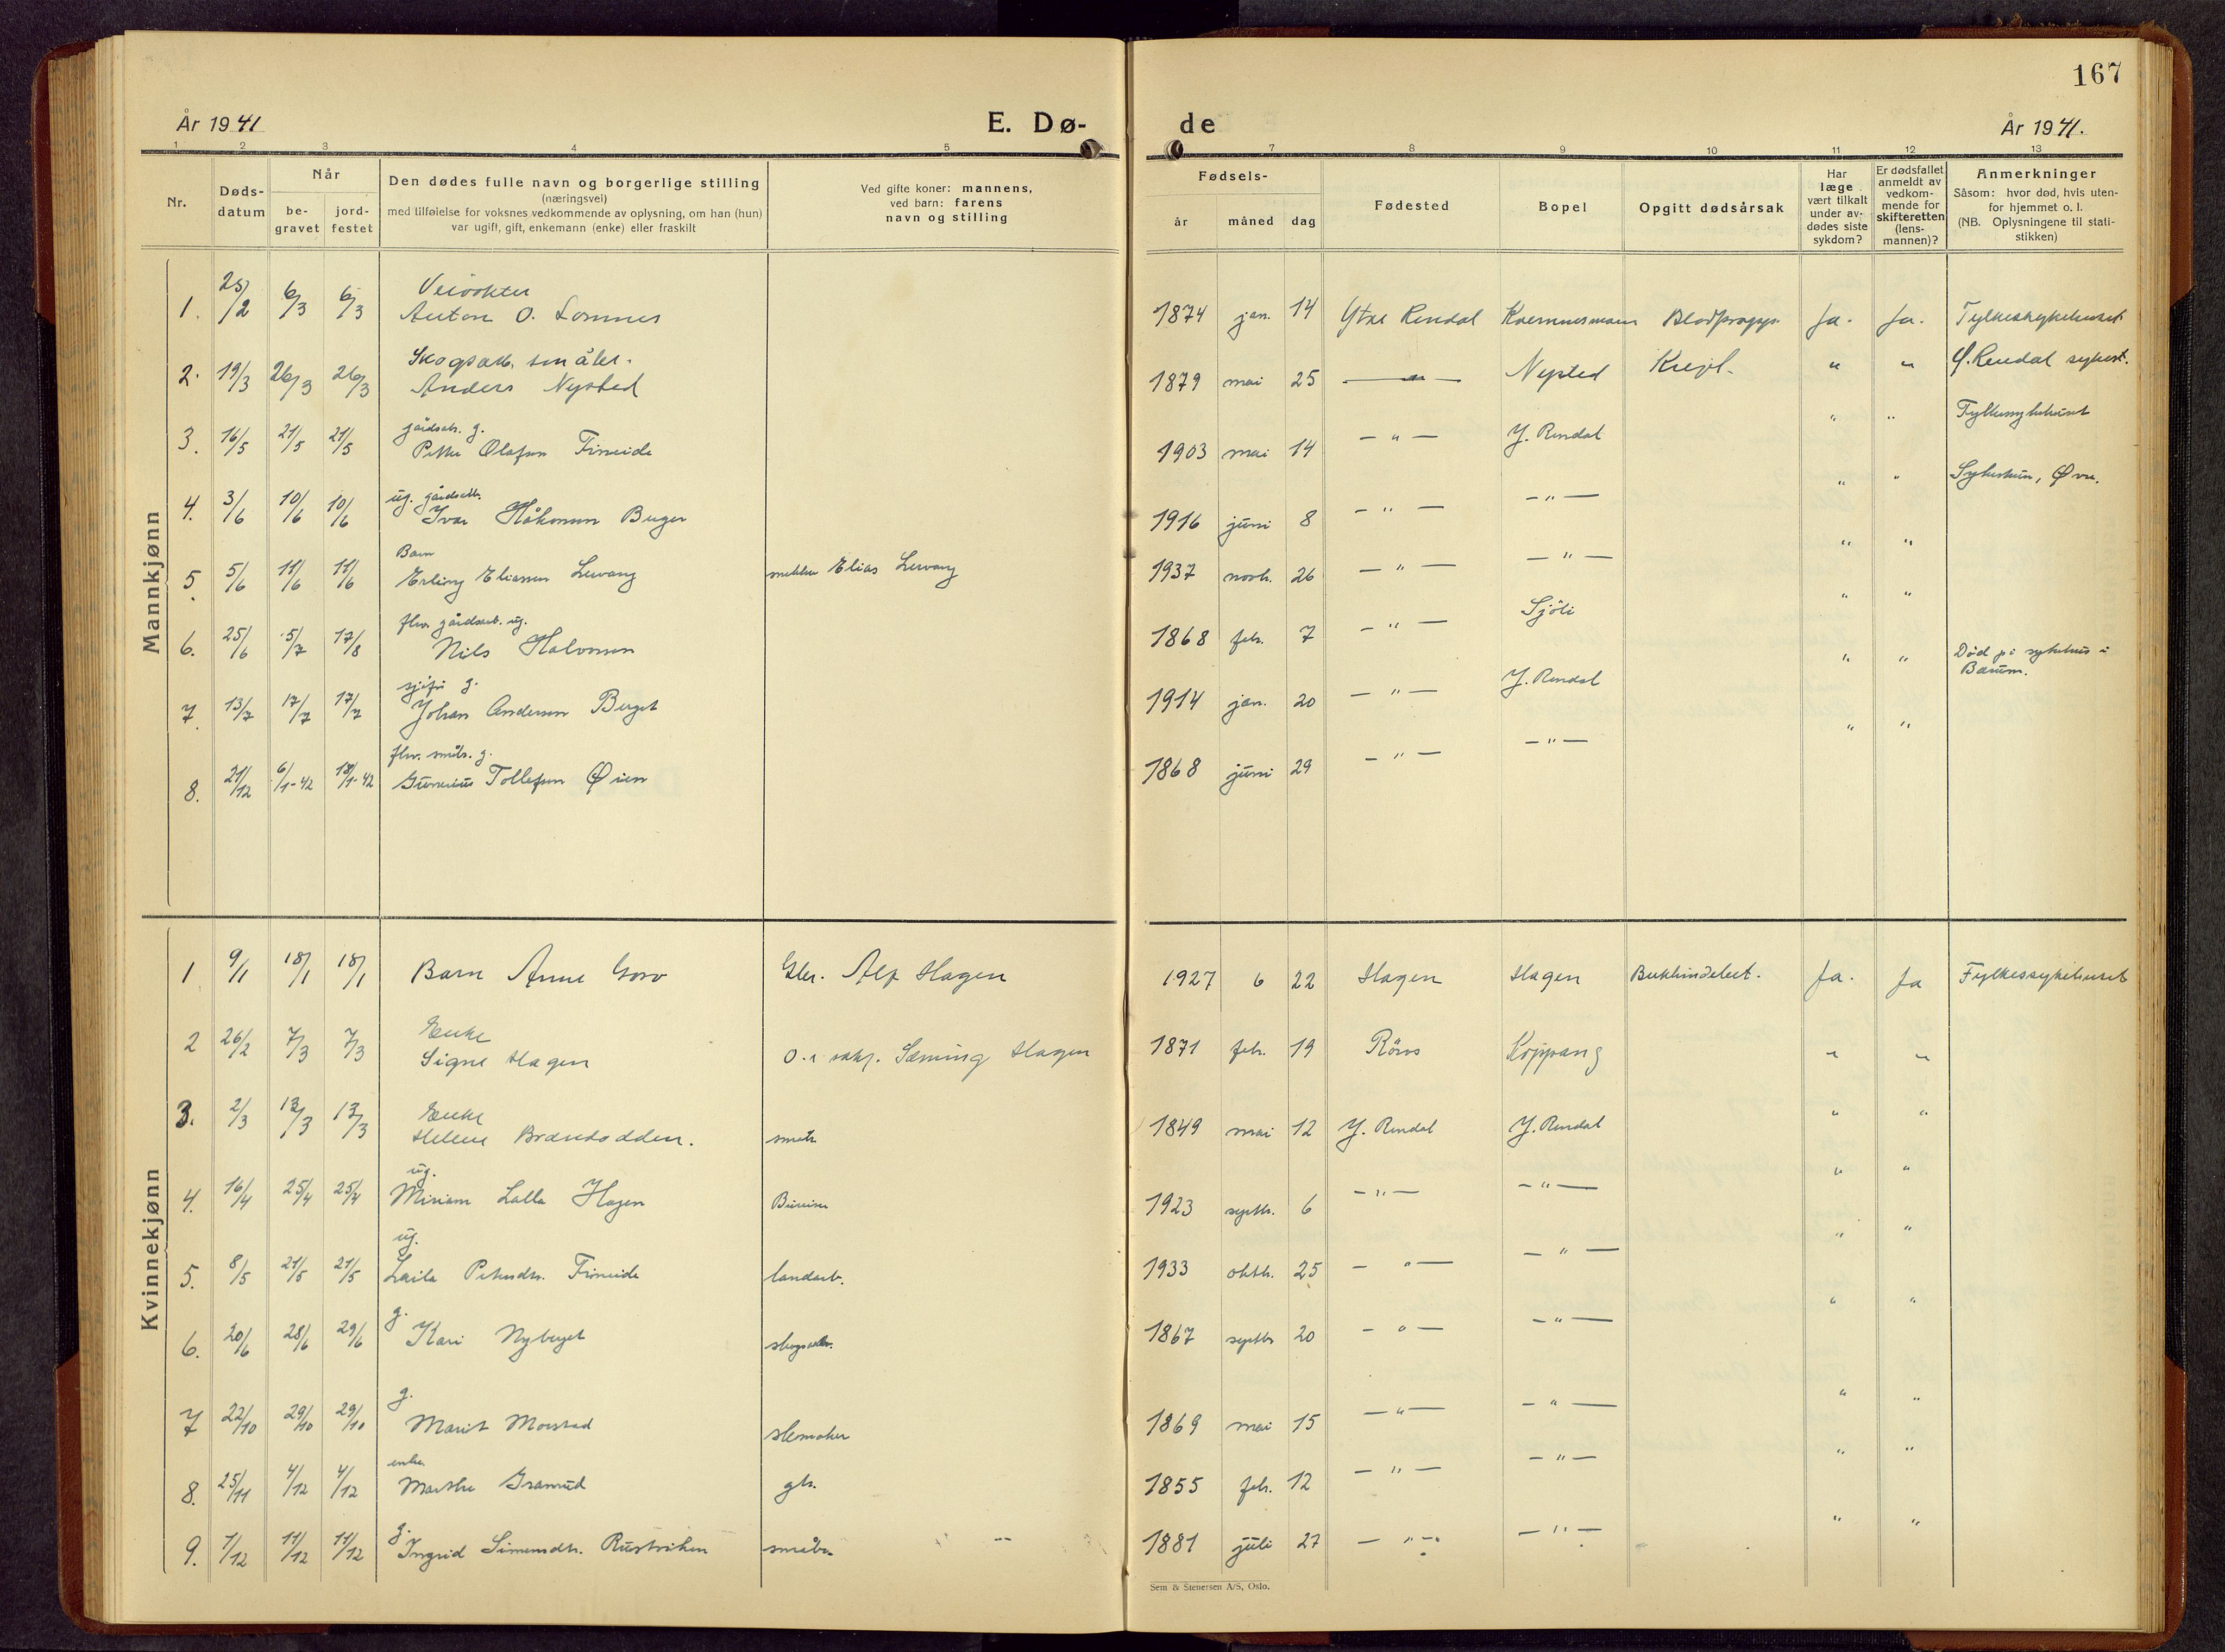 167
År 1941
E. Dø-
de
År 1941.
1 2 3 4 5 7 8 9 10 11 12 13
Nr.
Døds-
datum
Når
be-
gravet
jord-
festet
Den dødes fulle navn og borgerlige stilling
(næringsvei)
med tilføielse for voksnes vedkommende av oplysning, om han (hun)
var ugift, gift, enkemann (enke) eller fraskilt
Ved gifte koner: mannens,
ved barn: farens
navn og stilling
Fødsels-
år måned dag
Fødested
Bopel
Opgitt dødsårsak
Har
læge
vært tilkalt
under av-
dødes siste
sykdom?
Er dødsfallet
anmeldt av
vedkom-
mende for
skifteretten
(lens-
mannen)?
Anmerkninger
Såsom: hvor død, hvis uten-
for hjemmet o. l.
(NB. Oplysningene til stati-
stikken)
Mannkjønn
Veivokter
1. 25/2 6/3 6/3 Anton O. Lomnes 1874 jan. 14 Ytre Rendal Blodpropp. Ja. Ja. Fylkessykehuset
2. 19/3 26/3 26/3 Anders Nysted 1879 mai 25 — " — Nysted " " Y. Rendal sykest.
gårdsarb. g.
3. 16/5 21/5 21/5 Petter Olafsen Finneide 1903 mai 14 — " — Y. Rendal " " Fylkessykehuset
ug. gårdsarb.
4. 3/6 10/6 10/6 Ivar Håkonsen Berger 1916 juni 8 — " — — " — " "
Barn
5. 5/6 11/6 11/6 Erling Eliassen snekker Elias 1937 novb. 26 — " — — " — " "
fhv. gårdsarb. ug.
6. 25/6 5/7 17/8 Nils Halvorsen 1868 feb. 7 — " — Sjöli " "
g.
7. 13/7 17/7 17/7 Johan Andersen Berget 1914 jan. 20 — " — Y. Rendal " " Død på sykehus i
Bærum.
fhv. småbr. g.
8. 21/12 6/1-42 18/1-42 Gunerius Tollefsen Øien 1868 juni 29 — " — — " — " "
Kvinnekjønn
1 9/1 18/1 18/1 Barn Anne Goro Gbr. Alf Hagen 1927 6 22 Hagen Hagen Bukhindebet. Ja. Ja Fylkessykehuset
Enke
2 26/2 7/3 7/3 Signe Hagen Sæming Hagen 1871 feb. 19 Röros Koppang " "
Enke
3. 2/3 13/3 13/3 Helene Brændodden. småbr. 1849 mai 12 Y. Rendal Y. Rendal " "
ug.
4. 16/4 25/4 25/4 Miriam Lalla Hagen Bureiser 1923 septb. 6 — " — — " — " "
ug.
5. 8/5 21/5 21/5 Laila Petersdtr. Finneide landarb. 1933 oktb. 25 — " — — " — " "
g.
6. 20/6 28/6 29/6 Kari Nyberget skogsarb. 1867 septb 20 — " — — " — " "
g.
7 22/10 29/10 29/10 Marit Morstad skomaker 1869 mai 15 — " — — " — " "
enke
8. 25/11 4/12 4/12 Marthe Granrud gbr. 1855 feb. 12 — " — — " — " "
g.
9. 7/12 11/12 11/12 Ingrid Simensdtr. småbr. 1881 juli 27 — " — — " — " "
Sem & Stenersen A/S, Oslo.